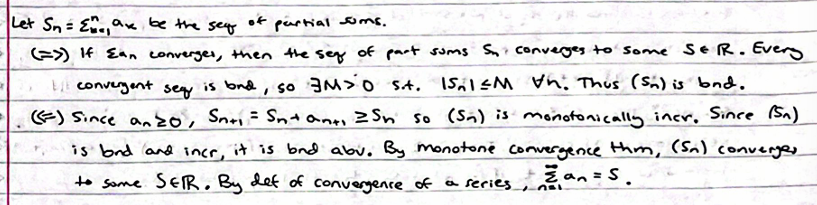 Let Sn = Σⁿₖ₌₁ aₖ be the seq of partial sums.
(=>) If Σan converges, then the seq of part sums Sn converges to some S ∈ ℝ. Every
convergent seq is bnd, so ∃M>0 s.t. |Sn| ≤ M ∀n. Thus (Sn) is bnd.
(<=) Since an ≥ 0, Sn+1 = Sn + an+1 ≥ Sn so (Sn) is monotonically incr. Since (Sn)
is bnd and incr, it is bnd abv. By monotone convergence thm, (Sn) converges
to some S∈ℝ. By def of convergence of a series, Σ^∞ₙ₌₁ an = S.